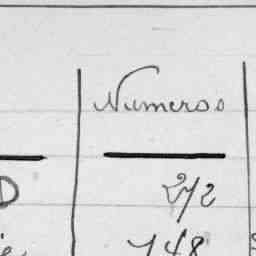 Numeros
D 272
148